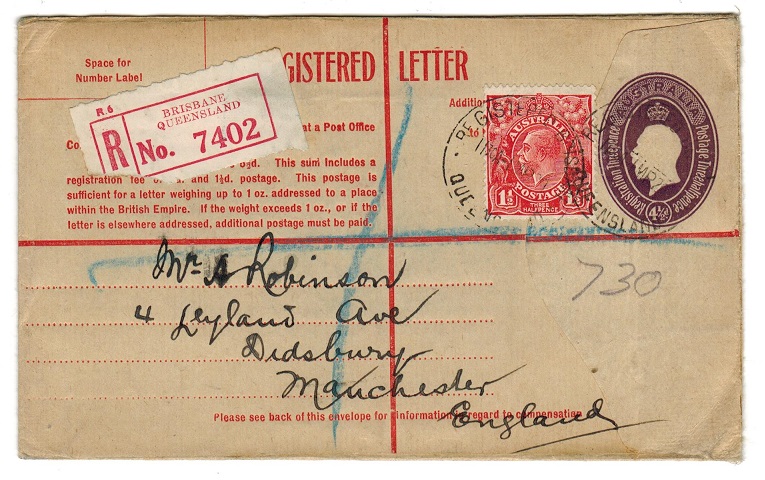 Space for
Number Label
GISTERED LETTER
R.6
BRISBANE
QUEENSLAND
R No. 7402
at a Post Office
½d. This sum includes a
registration fee and 1½d. postage. This postage is
sufficient for a letter weighing up to 1 oz. addressed to a place
within the British Empire. If the weight exceeds 1 oz., or if the
letter is elsewhere addressed, additional postage must be paid.
AUSTRALIA
POSTAGE
1½ 1½
THREE
HALFPENCE
AUSTRALIA
Registration Threepence
Postage Three halfpence
4½d
QUEENSLAND
730
Mr. A Robinson
4 Leyland Ave
Didsbury
Manchester
England
Please see back of this envelope for information in regard to compensation